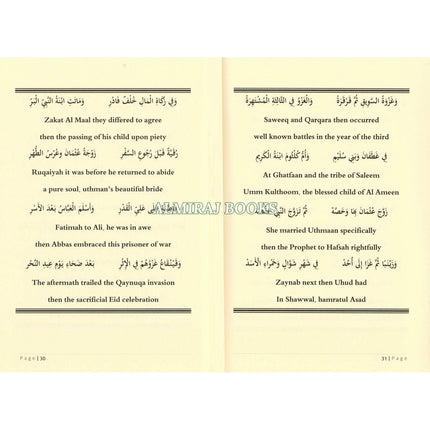 وَفِي زَكَاةِ الْمَالِ خُلْفٌ فَادْرِ وَمَاتَتِ ابْنَةُ النَّبِيِّ الْبَرِّ
Zakat Al Maal they differed to agree
then the passing of his child upon piety
رُقَيَّةٌ قَبْلَ رُجُوعِ السَّفْرِ زَوْجَةُ عُثْمَانَ وَعُرْسُ الطُّهْرِ
Ruqaiyah it was before he returned to abide
a pure soul, uthman's beautiful bride
فَاطِمَةٍ عَلَى عَلِيِّ الْقَدْرِ وَأَسْلَمَ الْعَبَّاسُ بَعْدَ الْأَسْرِ
Fatimah to Ali, he was in awe
then Abbas embraced this prisoner of war
وَقَيْنُقَاعُ غَزْوُهُمْ فِي الْإِثْرِ بَعْدَ ضَحَاءِ يَوْمِ عِيدِ النَّحْرِ
The aftermath trailed the Qaynuqa invasion
then the sacrificial Eid celebration
Page | 30
وَغَزْوَةُ السَّوِيقِ ثُمَّ قَرْقَرَةْ وَالْغَزْوُ فِي الثَّالِثَةِ الْمُشْتَهِرَةْ
Saweeq and Qarqara then occurred
well known battles in the year of the third
فِي غَطَفَانَ وَبَنِي سُلَيْمِ وَأُمُّ كُلْثُومَ ابْنَةُ الْكَرِيمِ
At Ghatfaan and the tribe of Saleem
Umm Kulthoom, the blessed child of Al Ameen
زَوَّجَ عُثْمَانَ بِهَا وَخَصَّهْ ثُمَّ تَزَوَّجَ النَّبِيُّ حَفْصَةْ
She married Uthmaan specifically
then the Prophet to Hafsah rightfully
وَزَيْنَبًا ثُمَّ غَزَا إِلَى أُحُدْ فِي شَهْرِ شَوَّالٍ وَحَمْرَاءِ الْأَسَدْ
Zaynab next then Uhud had
In Shawwal, hamratul Asad
31 | Page
ALMIRAJ BOOKS